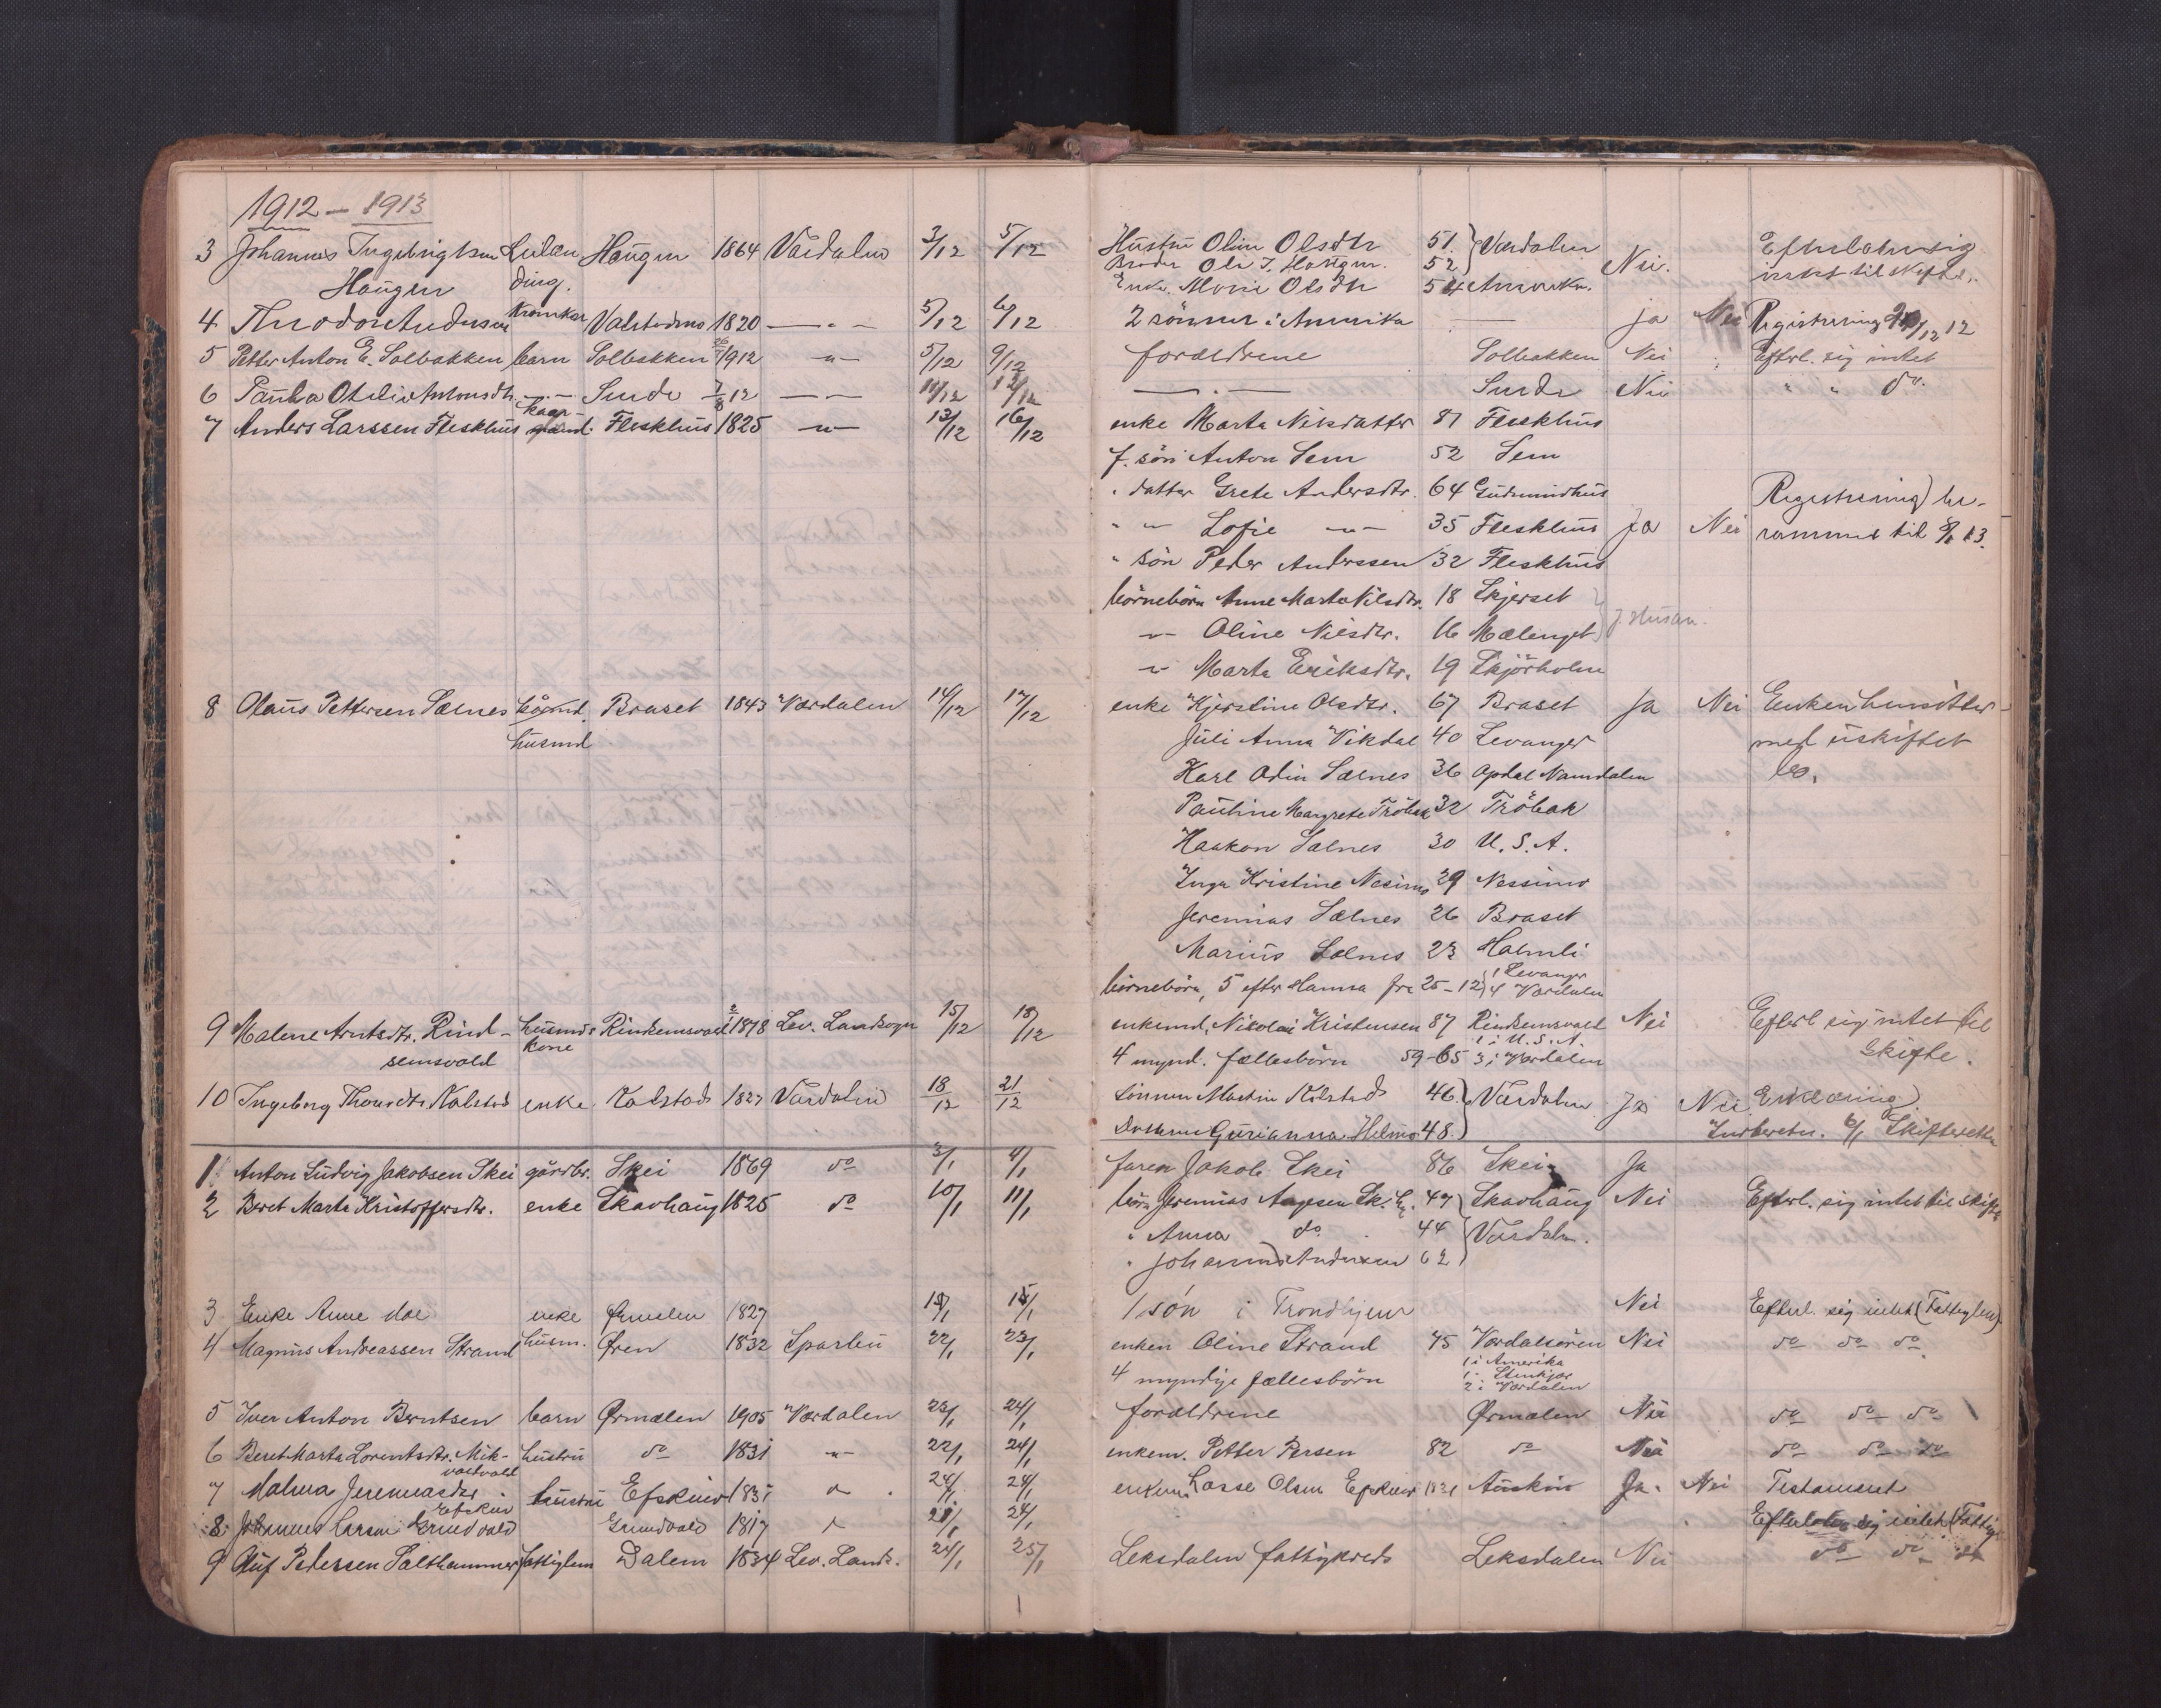 1912 - 1913
3 Johannes Ingebrigtsen Haugen 1864 Værdalen 3/12 5/12 Hustru Oline Olsdtr 51 Værdalen Nei. Efterlater sig
Haugen ding. Broder Ole J. Haugen. 52 intet til skifte.
Enke Marie Olsdtr 54 Amerika.
4 Theodor Andersen 1820 5/12 6/12 2 sönner i Amerika ja Nei Registrering 12
5 Petter Anton E. Solbakken barn Solbakken 1912 -"- 5/12 9/12 foreldrene Solbakken Nei Efterl. sig intet
6 Paula Otelie Antonsdtr. Sunde 12 11/12 12/12 Sunde Nei " " do.
7 Anders Larssen Fleskhus kaar- Fleskhus 1825 -"- 13/12 16/12 enke Marta Nilsdatter 81 Fleskhus
f. sön Anton Sem 52 Sem
" datter Grete Andersdtr. 64 Gudmundhus Registrering be-
" " Sofie -"- 35 Fleskhus Ja Nei rammet til 13.
" sön Peder Anderssen 32 Fleskhus
börnebörn Anne Marta Nilsdtr. 18 Skjerset
-"- Oline Nilsdtr. 16 Mælenget
-"- Marta Eriksdtr. 19 Skjörholm
8 Olaus Pettersen Salnes Braset 1843 Værdalen 14/12 17/12 enke Kjerstine Olsdtr. 67 Braset Ja Nei Enken hensitter
husmd Juli Anna Vikdal 40 Levanger med uskiftet
Karl Odin Salnes 36 Opdal Namdalen bo.
Pauline Margrete Tröbak 32 Tröbak
Haakon Salnes 30 U.S.A.
Inga Kristine Nesimo 29 Nessimo
Jeremias Salnes 26 Braset
Marius Salnes 23 Halmli
börnebörn, 5 efter Hanna fra 25-12 1 Levanger
4 Værdalen
9 Malene Arntsdtr. Rind- husmds Rindsemsvald 1878 Lev. Landsogn 15/12 18/12 enkemd. Nikolai Kristensen 87 Rindsemsvald Nei Efterl sig intet til
semsvald kone 4 mynd. fællesbörn 59-65 1 i U.S.A. 3 i Værdalen Skifte.
10 Ingeborg Thomsdtr Kalstad enke Kalstad 1827 Værdalen 18/12 21/12 Sönnen Martin Kalstad 46 Værdalen Ja Nei Erklæring
Datteren Gurianna Helmo 48. Indberetn. 6/1 Skifteretten
1 Anton Ludvig Jakobsen Skei gårdbr. Skei 1869 do 3/1 4/1 faren Jakob Skei 86 Skei Ja
2 Beret Marta Kristoffersdtr. enke Skavhaug 1825 do 10/1 11/1 börn Jeremias Aagesen Sk.hg. 47 Skavhaug Nei Efterl. sig intet til skifte
" Anna do 44 Værdalen.
" Johannes Andersen 62
3 Enke Anne Moe enke Ørmelen 1827 15/1 1 sön i Trondhjem Nei Efterl. sig intet (Fattiglem)
4 Magnus Andreassen Strand husm. Øren 1832 Sparbu 22/1 23/1 enken Oline Strand 75 Værdalsören Nei do do do
4 myndige fællesbörn 1 i Amerika
1 " Stenkjær
2 i Værdalen
5 Iver Anton Berntsen barn Ørmælen 1905 Værdalen 23/1 24/1 foreldrene Ørmælen Nei do do do
6 Beret Marta Lorentsdtr. Mik- hustru do 1831 -"- 22/1 24/1 enkem. Petter Persen 82 do Nei do do do
valvald
7 Malena Jeremiasdtr. hustru Efskin 1837 24/1 24/1 enkem. Lasse Olsen Efskin Ja. Nei Testament
Efskin
8 Johannes Larsen Grundvald Grundvald 1817 21/1 24/1 Efterlater sig intet (Fattig
9 Oluf Pedersen Salthammer fattiglem Dalem 1834 Lev. Lands. 24/1 25/1 Leksdalen fattigkreds Leksdalen Nei do do do